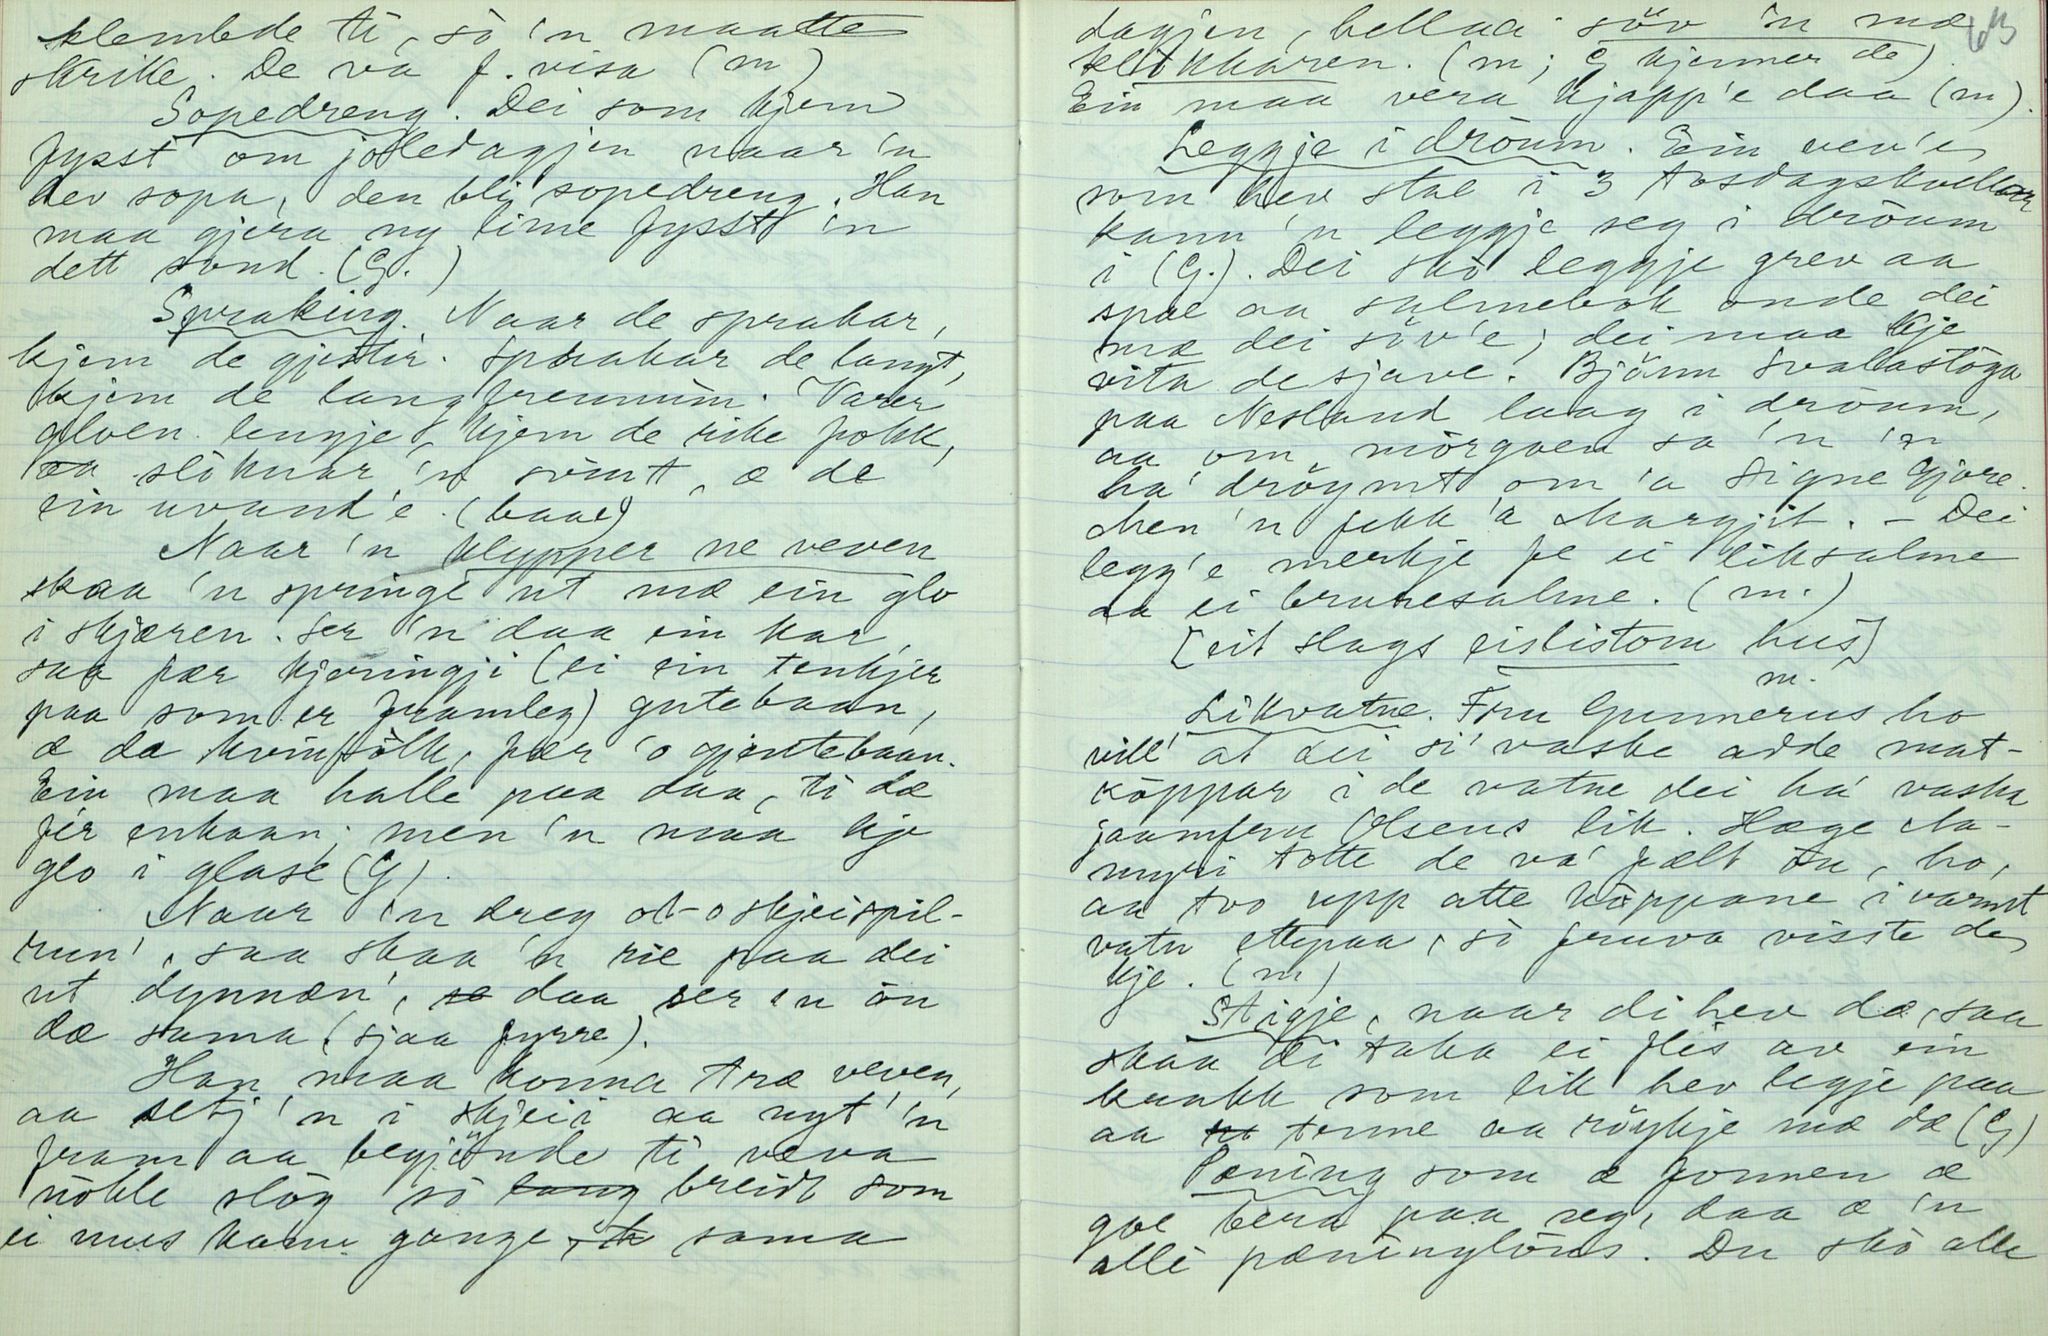 klembde ti, so 'n maatte
skrike. De va f. visa (m)
Sopedreng. Dei som kjem
fysst om joledagjen naar 'n
hev sopa, den bli sopedreng. Han
maa gjera ny lime fysst 'n
dett sund. (G.)
Spraking. Naar de sprakar,
kjem de gjestir. Sprakar de langt,
kjem de langfremmum. Varer
gloen lengje, kjem de rike fokk,
aa sloknar 'n svint, æ de
ein uvand'e. (baae)
Naar 'n klypper ne veven
skaa 'n springe ut mæ ein glo
i skjæren. Ser 'n daa ein kar,
saa fær kjeringji (ei ein tenkjer
paa som er framleg) gutebaan,
æ dæ kvinfolk, fær 'o gjentebaan.
Ein maa halle paa daa, ti dæ
fer enkaan; men 'n maa kje
glo i glase (G).
Naar 'n dreg ot o skjeispil-
run', saa skaa 'n rie paa dei
ut dynnæn', daa ser 'n on
dæ sama (sjaa fyrre).
Han maa konna træ veven,
aa setj 'n i skjei aa nyt 'n
fram aa begjönde ti veva
nokle slög so lang breidt som
ei mus kann gange, sama
dagjen, hellaa söv 'n mæ
klikkaren. (m; G kjenner de).
Ein maa vera kjapp'e daa (m).
Leggje i dröum. Ein vev'e
som hev stae i 3 tosdagskvellar
kann 'n leggje seg i dröum
i (G.). Dei sko leggje grev aa
spae aa salmebok onde dei
mæ dei söv'e; dei maa kje
vita de sjave. Björn Svalastoga
paa Nesland laag i dröum,
aa om morgoen sa 'n 'n
ha' dröymt om 'a Signe Gjore.
Men 'n fekk 'a Margjit. – Dei
legg'e merkje fe ei liksalme
aa ei brunesalme. (m.)
[eit slags eislistom hus]
m.
Likvatne. Fru Gunnerus ho
vill' at dei si' vaske adde mat-
köppar i de vatne dei ha' vaska
jaamfru Olsens lik. Hæge Na-
myri totte de va' fælt tu, ho,
aa tvo upp atte köppane i varmt
vatn ettepaa, so fruva visste de
kje. (m)
Stigje, naar di hev dæ, saa
skaa di taka ei flis av ein
krakk som lik hev legje paa
aa tenne aa röykje mæ dæ (G)
Pæning som æ fonnen æ
goe bera paa seg, daa æ 'n
alli pæninglöus. Du sko alle